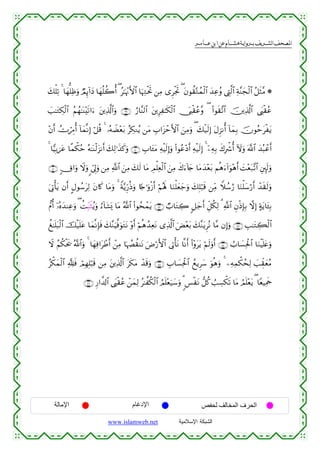 المصحف الشريف برواية هشام عن ابن عامر
* مَّثَلُ الْجَنَّةِ الَّتِي وُعِدَ الْمُتَّقُونَ تَجْرِي مِن تَحْتِهَا الْأَنْهَارُ أُكُلُهَا دَائِمٌ وَظِلُّهَا تِلْكَ
عُقْبَى الَّذِينَ اتَّقَوا وَّعُقْبَى الْكَافِرِينَ النَّارُ وَالَّذِينَ آتَيْنَاهُمُ الْكِتَابَ
يَفْرَحُونَ بِمَا أُنزِلَ إِلَيْكَ وَمِنَ الْأَحْزَابِ مَن يُنكِرُ بَعْضَهُ قُلْ إِنَّمَا أُمِرْتُ أَنْ
أَعْبُدَ اللَّهَ وَلَا أُشْرِكَ بِهِ إِلَيْهِ أَدْعُو وَإِلَيْهِ مَآبِ وَكَذَلِكَ أَنزَلْنَاهُ حُكْمًا عَرَبِيًّا
وَلَئِنِ اتَّبَعْتَ أَهْوَاءَهُم بَعْدَ مَا جَاءَكَ مِنَ الْعِلْمِ مَا لَكَ مِنَ اللَّهِ مِن وَلِيٍّ وَلَا وَاقٍ
وَلَقَدْ أَرْسَلْنَا رُسُلًا مِّن قَبْلِكَ وَجَعَلْنَا لَهُمْ أَزْوَاجًا وَذُرِّيَّةً وَمَا كَانَ لِرَسُولٍ أَن يَأْتِيَ
بِآيَةٍ إِلَّا بِإِذْنِ اللَّهِ لِكُلِّ أَجَلٍ كِتَابٌ يَمْحُوا اللَّهُ مَا يَشَاءُ وَيُثَبِّتُ وَعِندَهُ أُمُّ
الْكِتَابِ وَإِن مَّا نُرِيَنَّكَ بَعْضَ الَّذِي نَعِدُهُمْ أَوْ نَتَوَفَّيَنَّكَ فَإِنَّمَا عَلَيْكَ الْبَلَاغُ
وَعَلَيْنَا الْحِسَابُ أَوَلَمْ يَرَوْا أَنَّا نَأْتِي الْأَرْضَ نَنقُصُهَا مِنْ أَطْرَافِهَا وَاللَّهُ يَحْكُمُ لَا
مُعَقِّبَ لِحُكْمِهِ وَهُوَ سَرِيعُ الْحِسَابِ وَقَدْ مَكَرَ الَّذِينَ مِن قَبْلِهِمْ فَلِلَّهِ الْمَكْرُ
جَمِيعًا يَعْلَمُ مَا تَكْسِبُ كُلُّ نَفْسٍ وَسَيَعْلَمُ الْكُفَّارُ لِمَنْ عُقْبَى الدَّارِ
الحرف المخالف لحفص الإدغام الإمالة
الشبكة الإسلامية www.islamweb.net